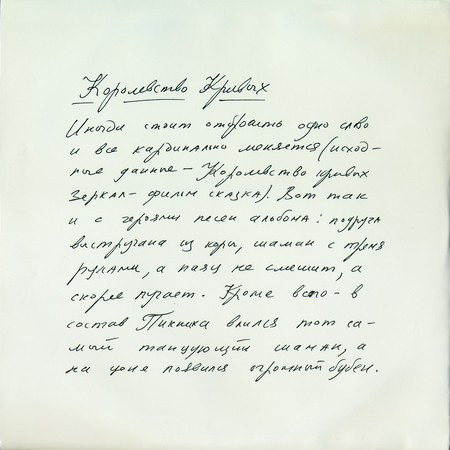 Королевство Кривых
Иногда стоит отбросить одно слово
и все кардинально меняется (исход-
ные данные – Королевство кривых
зеркал – фильм сказка). Вот так
и с героями песен альбома: подруга
выстругана из коры, шаман с тремя
руками, а паяц не смешит, а
скорее пугает. Кроме всего – в
состав Пикника влился тот са-
мый танцующий шаман, а
на фоне появился огромный бубен.